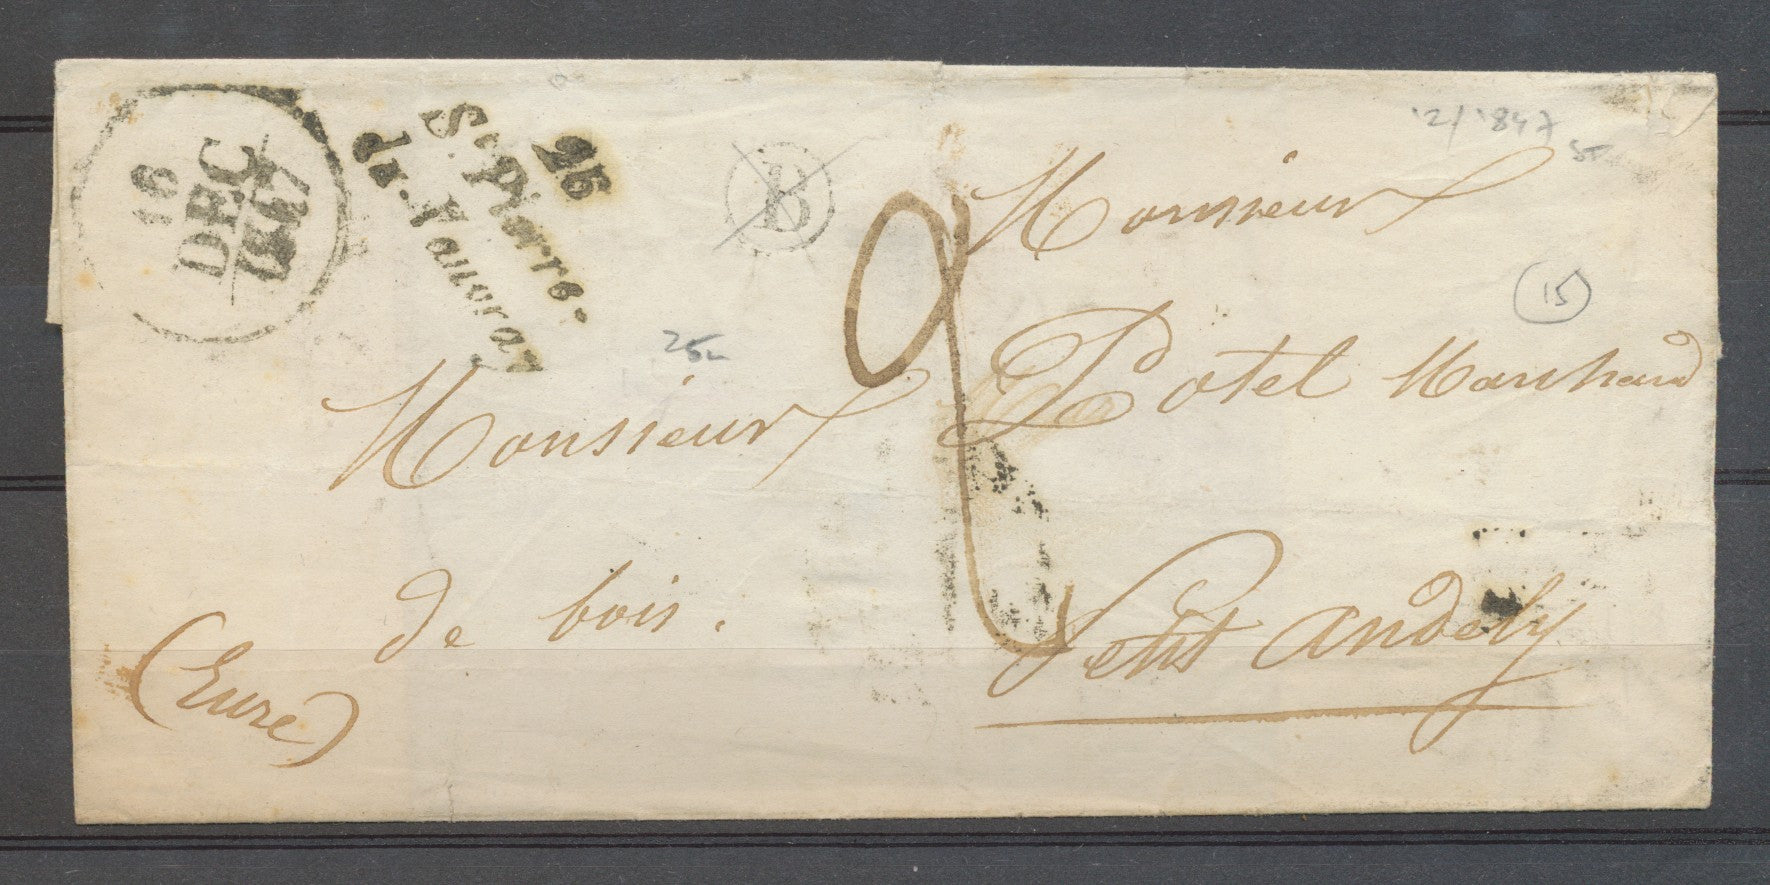 16
DEC
1847
25
St. Pierre-
du-Vauvray
B
2
12/1847
15
25
Monsieur
Monsieur Potel Marchand
de bois.
Petit andely
(Eure)